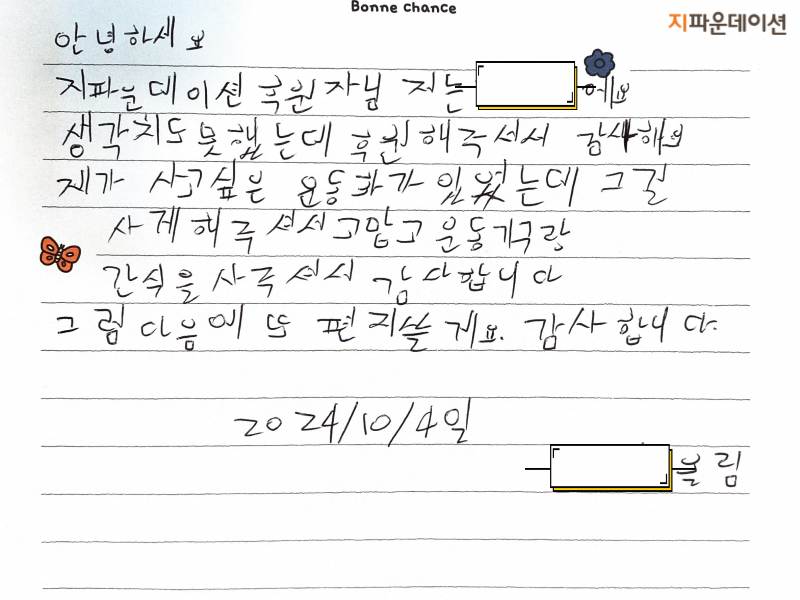 Bonne chance
지파운데이션
안녕하세요
지파운데이션 후원자님 저는 예요
생각치도 못했는데 후원해주셔서 감사해요
제가 사고싶은 운동화가 있었는데 그걸
사게해주셔서 고맙고 운동기구랑
간식을 사주셔서 감사합니다
그럼 다음에 또 편지쓸게요. 감사합니다.
2024/10/4일
올림